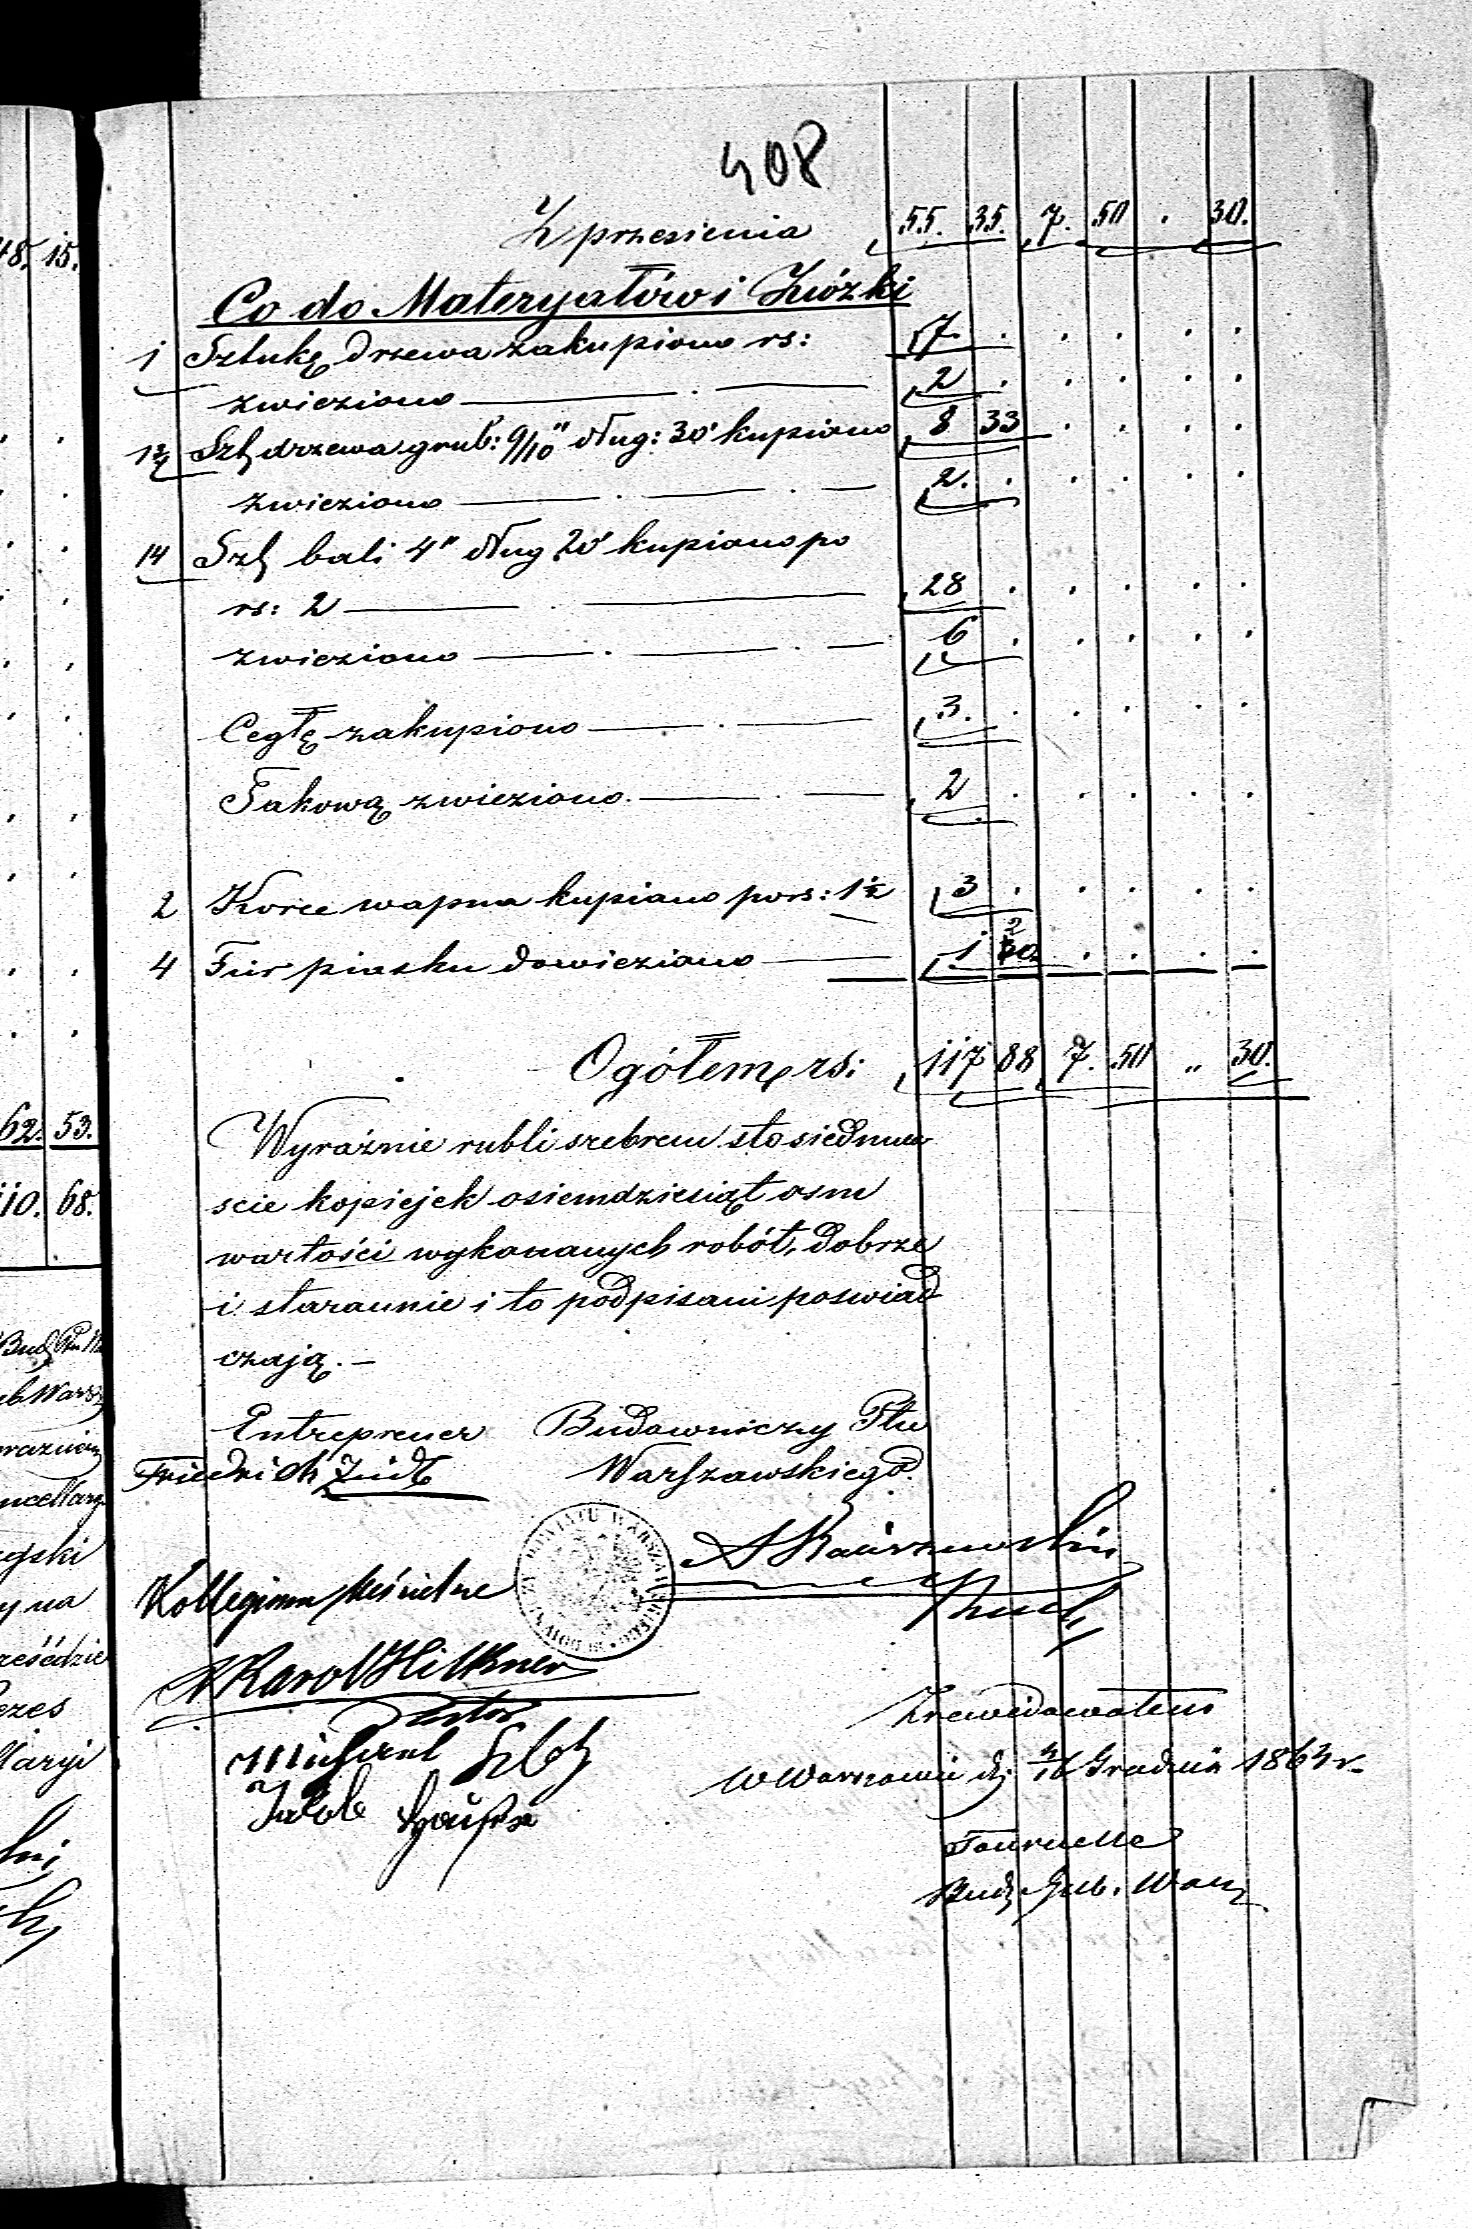 408
Z przesienia 55. 35. 7. 50 . 30.
Co do Materyałów i Zwózki
1 Sztukę drzewa zakupiono rs: 7 . . . . .
zwieziono — . — 2 . . . . .
Szt drzewa grub: 9/10" dług: 30' kupiono 8 33 . . . .
zwieziono — . — . — 2. . . . . .
14 Szt bali 4" dług 20' kupiono po
rs: 2 — . — 28 . . . . .
zwieziono — . — . — 6 . . . . .
Cegłę zakupiono — . — 3. . . . . .
Takową zwieziono. — . — 2 . . . . .
2 Korce wapna kupiono po rs: 1½ 3 . . . . .
4 Fur piasku dowieziono — 1 20 . . . .
Ogółem rs: 117 88 7. 50 „ 30.
Wyraźnie rubli srebrem sto siedmna
scie kopiejek osiemdziesiąt osm
wartości wykonanych robót, dobrze
i starannie i to podpisani poswiad
czają. —
Entreprener Budowniczy Ptu
Friedrich Warszawskiego.
Kollegium Kościelne
Karol
Pastor
Michael
Jakob
Zrewidowałem
w Warszawie d. Grudnia 186
Tournelle
Bud. Gub. Warsz
48. 15.
62. 53.
110. 68.